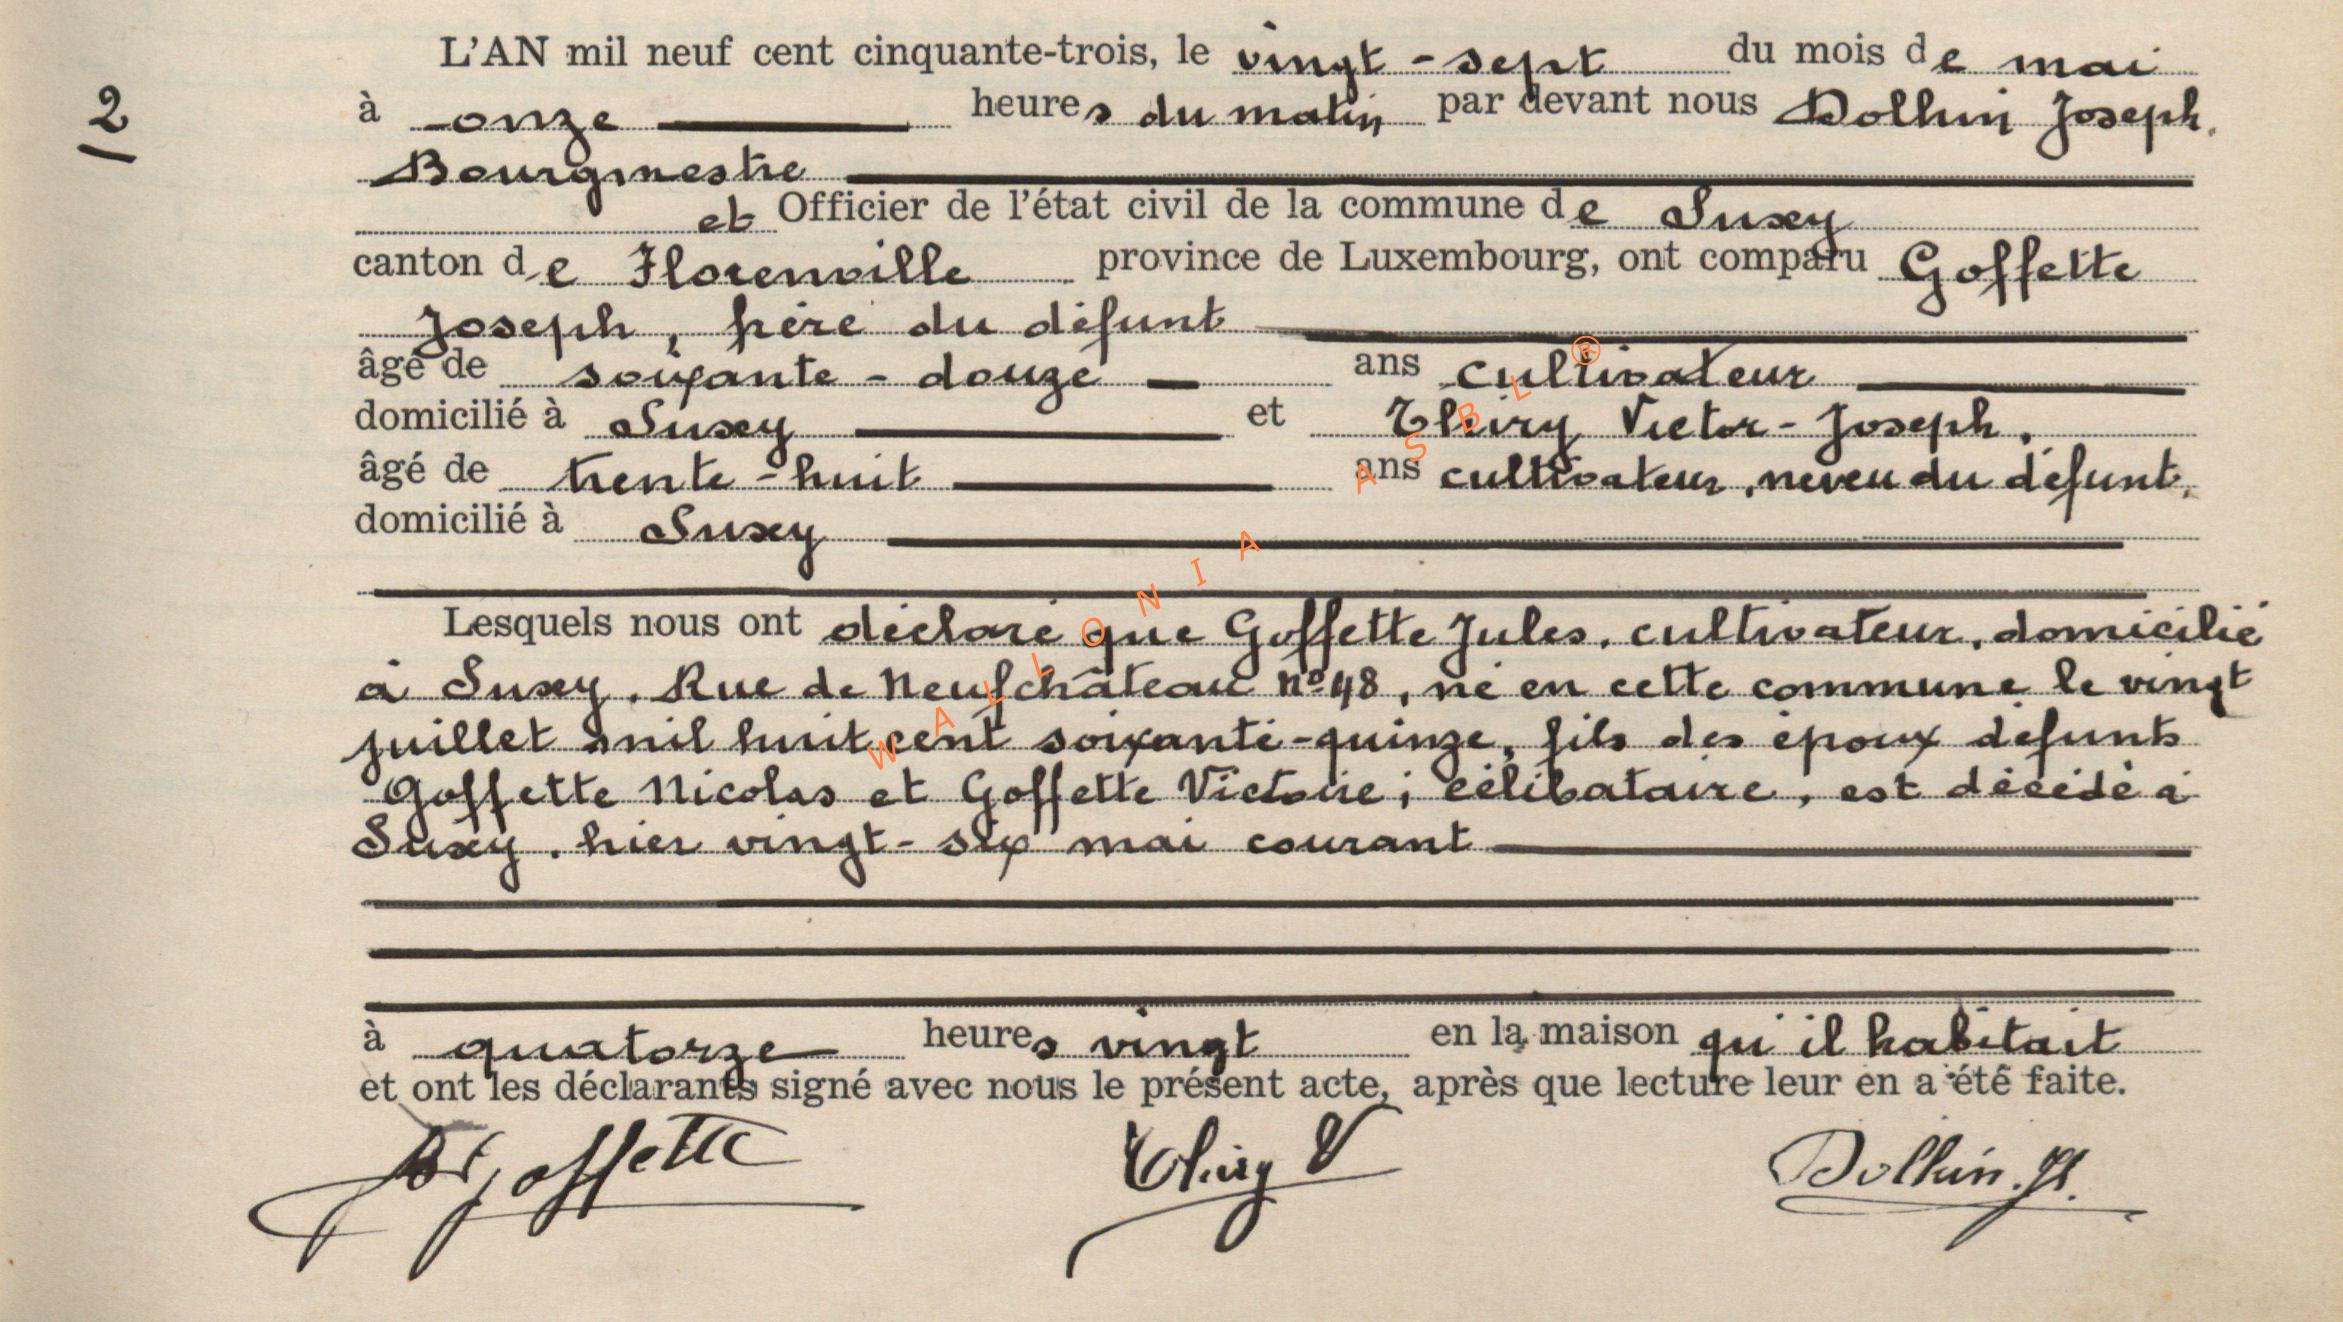 L'AN mil neuf cent cinquante-trois, le vingt-sept du mois de mai
2
à onze heures du matin par devant nous Dolhin Joseph.
Bourgmestre
et Officier de l'état civil de la commune de Suxey
canton de Florenville province de Luxembourg, ont comparu Goffette
Joseph, frère du défunt
âgé de soixante-douze ans cultivateur
domicilié à Suxey et Thiry Victor-Joseph,
âgé de trente-huit ans cultivateur, neveu du défunt,
domicilié à Suxy
Lesquels nous ont déclaré que Goffette Jules, cultivateur, domicilié
à Suxy, Rue de Neufchâteau n° 48, né en cette commune le vingt
juillet mil huit cent soixante-quinze, fils des époux défunts
Goffette Nicolas et Goffette Victoire; célibataire, est décédé à
Suxy, hier vingt-six mai courant
à quatorze heures vingt en la maison qu'il habitait
et ont les déclarants signé avec nous le présent acte, après que lecture leur en a été faite.
Goffette Thiry V Dolhin. Js.
WALLONIA ASBL ®